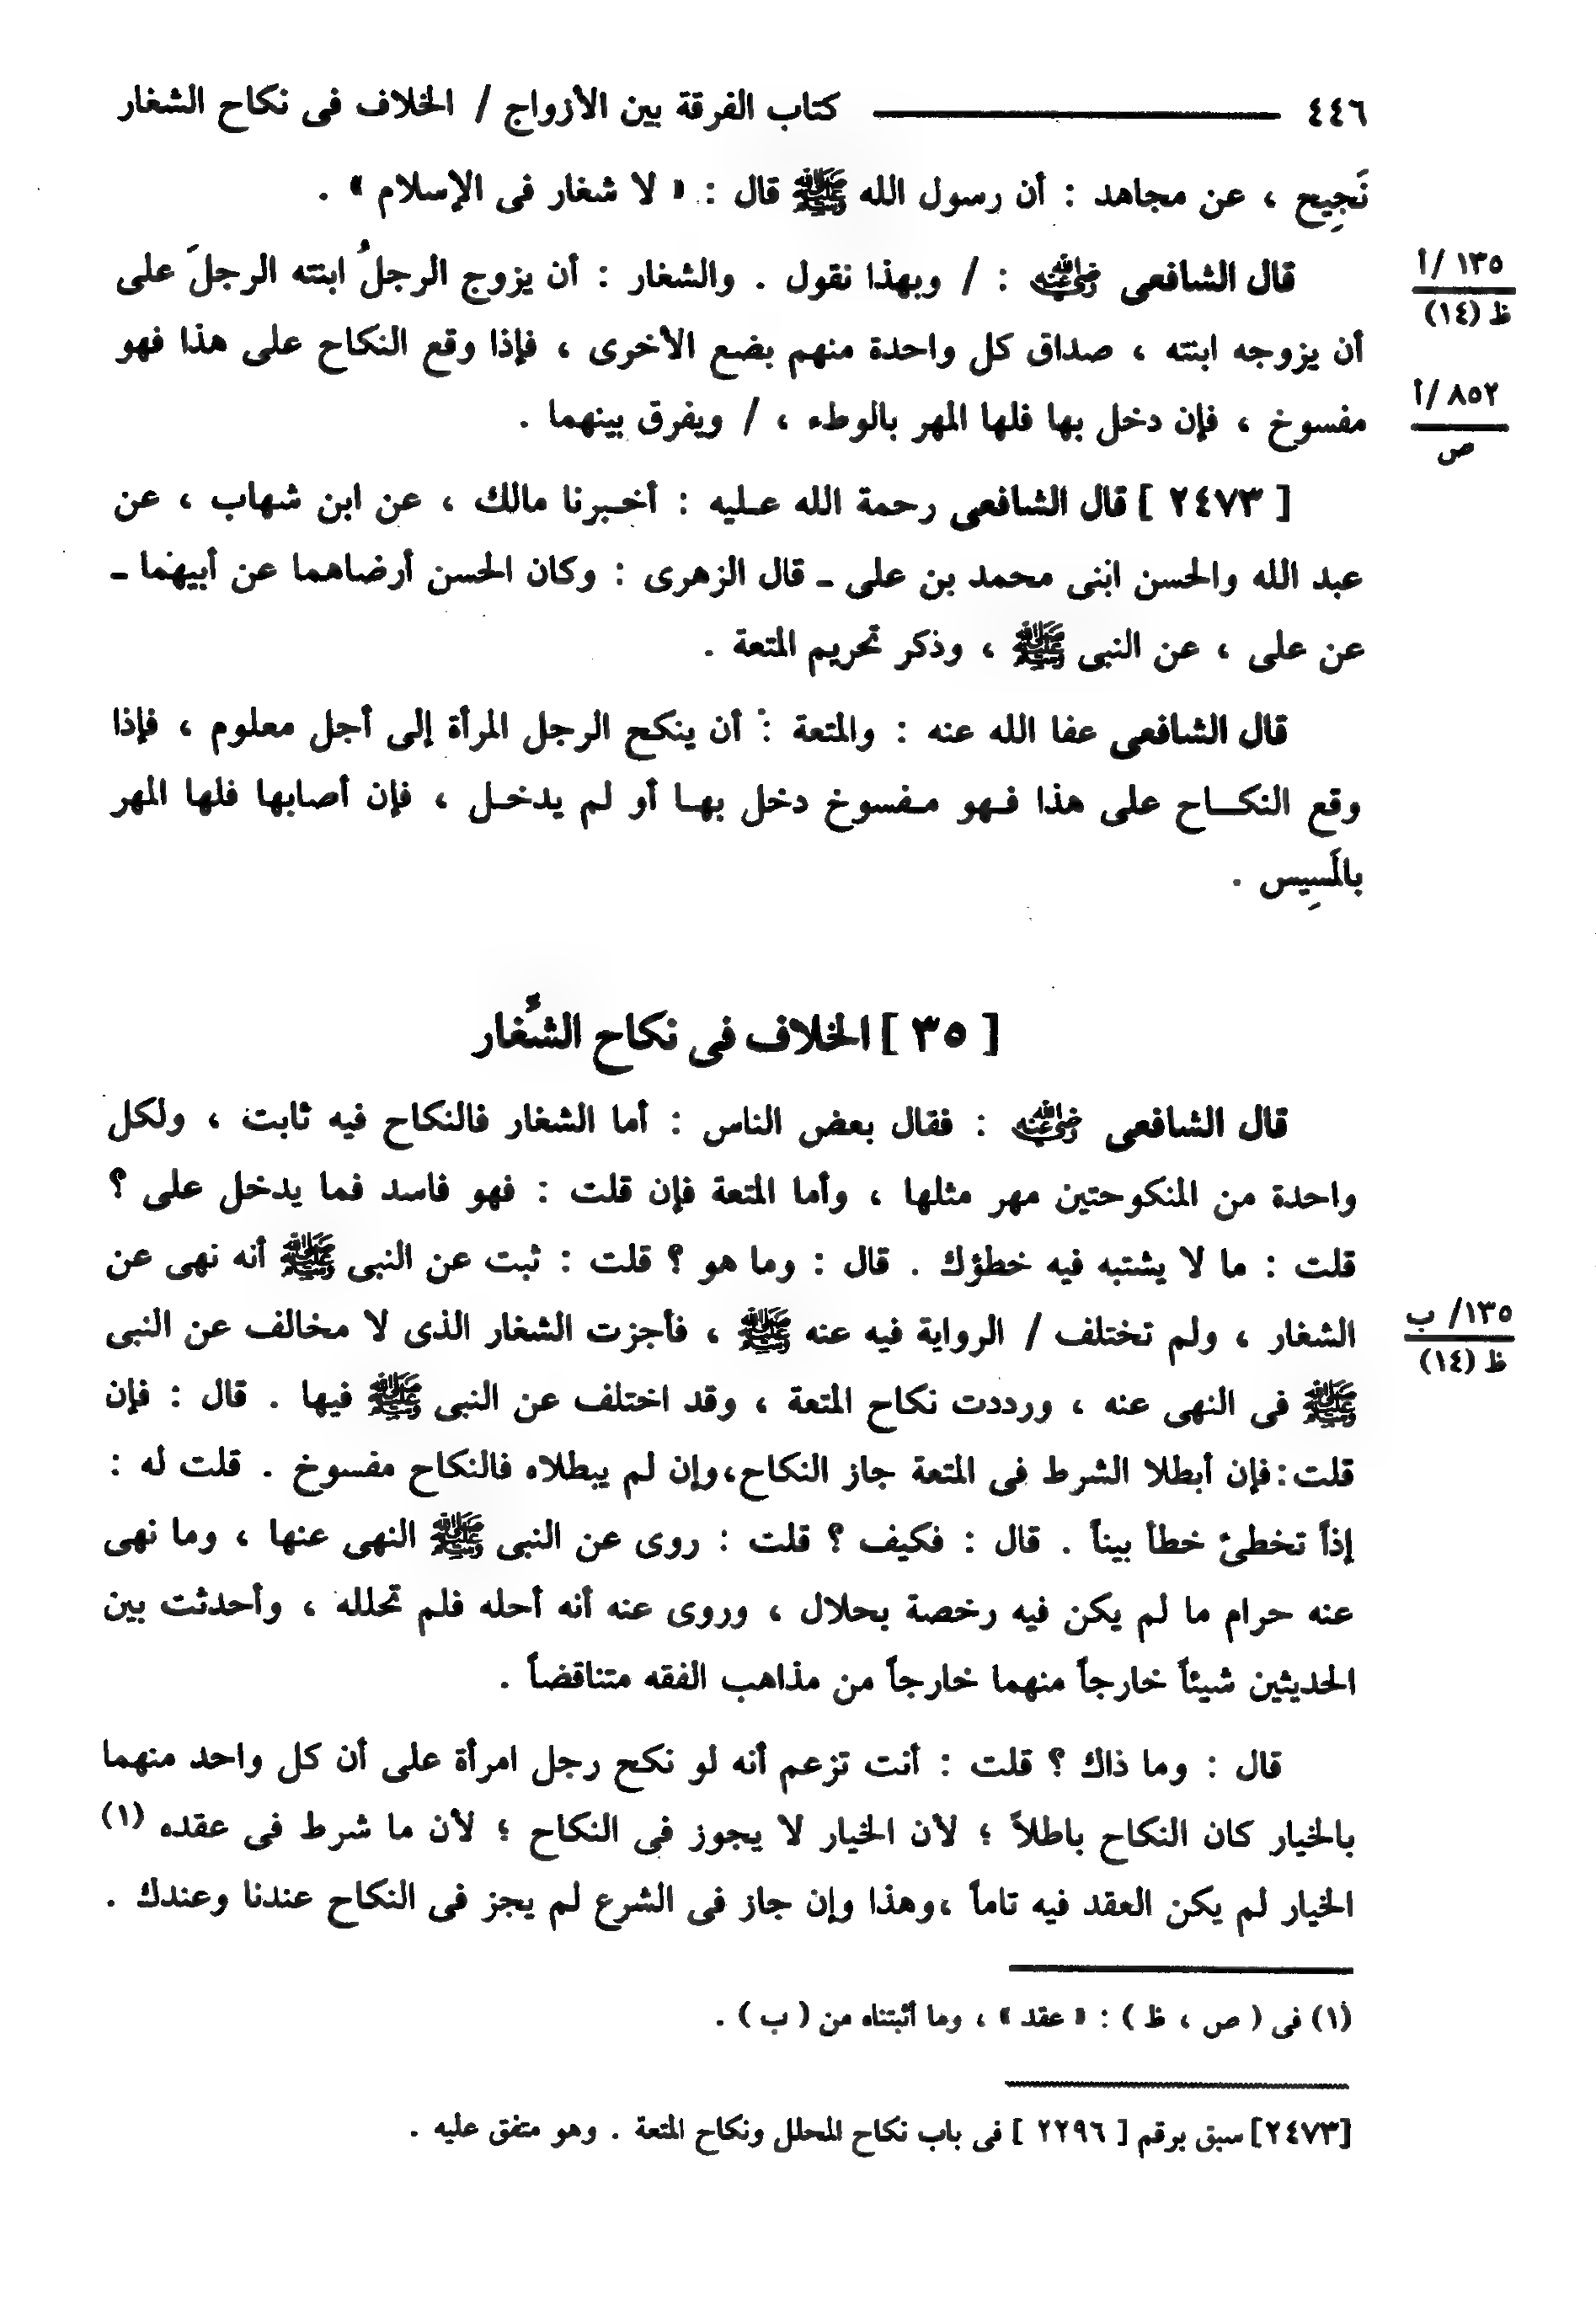 ٤٤٦ كتاب الفرقة بين الأزواج / الخلاف فى نكاح الشغار
نَجِيح ، عن مجاهد : أن رسول الله ﷺ قال : « لا شغار فى الإسلام » .
قال الشافعى رضي الله عنه : / وبهذا نقول . والشغار : أن يزوج الرجلُ ابنته الرجلَ على
١٣٥ /أ
ظ (١٤)
أن يزوجه ابنته ، صداق كل واحدة منهم بضع الأخرى ، فإذا وقع النكاح على هذا فهو
مفسوخ ، فإن دخل بها فلها المهر بالوطء ، / ويفرق بينهما .
٨٥٢ /أ
ص
[ ٢٤٧٣ ] قال الشافعى رحمة الله عليه : أخبرنا مالك ، عن ابن شهاب ، عن
عبد الله والحسن ابنى محمد بن على ـ قال الزهرى : وكان الحسن أرضاهما عن أبيهما ـ
عن على ، عن النبى ﷺ ، وذكر تحريم المتعة .
قال الشافعى عفا الله عنه : والمتعة : أن ينكح الرجل المرأة إلى أجل معلوم ، فإذا
وقع النكاح على هذا فهو مفسوخ دخل بها أو لم يدخل ، فإن أصابها فلها المهر
بالَمسِيس .
[ ٣٥ ] الخلاف فى نكاح الشِّغار
قال الشافعى رضي الله عنه : فقال بعض الناس : أما الشغار فالنكاح فيه ثابت ، ولكل
واحدة من المنكوحتين مهر مثلها ، وأما المتعة فإن قلت : فهو فاسد فما يدخل على ؟
قلت : ما لا يشتبه فيه خطؤك . قال : وما هو ؟ قلت : ثبت عن النبى ﷺ أنه نهى عن
الشغار ، ولم تختلف / الرواية فيه عنه ﷺ ، فأجزت الشغار الذى لا مخالف عن النبى
١٣٥/ ب
ظ (١٤)
ﷺ فى النهى عنه ، ورددت نكاح المتعة ، وقد اختلف عن النبى ﷺ فيها . قال : فإن
قلت:فإن أبطلا الشرط فى المتعة جاز النكاح،وإن لم يبطلاه فالنكاح مفسوخ . قلت له :
إذاً تخطئ خطأ بيناً . قال : فكيف ؟ قلت : روى عن النبى ﷺ النهى عنها ، وما نهى
عنه حرام ما لم يكن فيه رخصة بحلال ، وروى عنه أنه أحله فلم تحلله ، وأحدثت بين
الحديثين شيئاً خارجاً منهما خارجاً من مذاهب الفقه متناقضاً .
قال : وما ذاك ؟ قلت : أنت تزعم أنه لو نكح رجل امرأة على أن كل واحد منهما
بالخيار كان النكاح باطلاً ؛ لأن الخيار لا يجوز فى النكاح ؛ لأن ما شرط فى عقده (١)
الخيار لم يكن العقد فيه تاماً ،وهذا وإن جاز فى الشرع لم يجز فى النكاح عندنا وعندك .
(١) فى ( ص ، ظ ) : « عقد » ، وما أثبتناه من ( ب ) .
[٢٤٧٣] سبق برقم [ ٢٢٩٦ ] فى باب نكاح المحلل ونكاح المتعة . وهو متفق عليه .